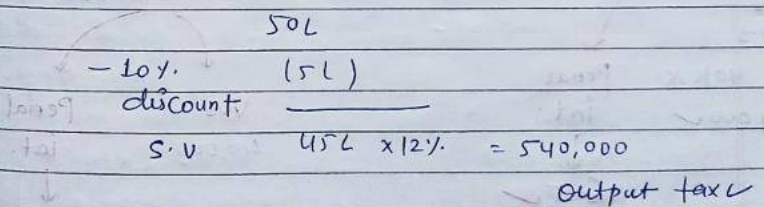 50L
- 10%. (5L)
discount.
S.V 45L x 12%. = 540,000
output tax